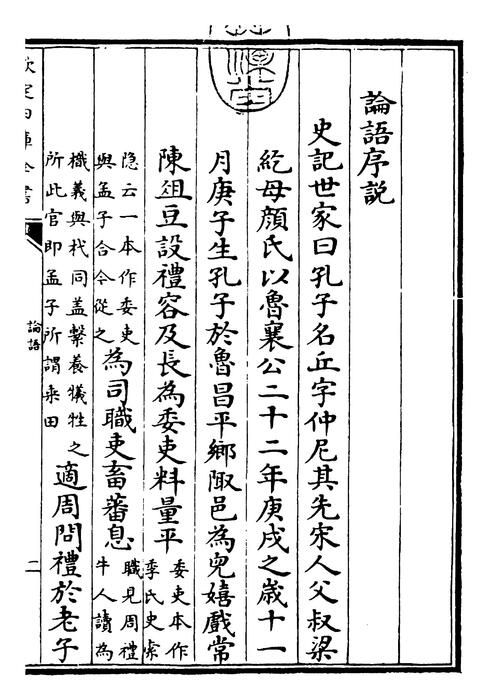 論語序説
史記世家曰孔子名丘字仲尼其先宋人父叔梁
紇母顔氏以魯襄公二十二年庚戌之歳十一
月庚子生孔子於魯昌平鄉陬邑為兒嬉戲常
陳俎豆設禮容及長為委吏料量平
委吏本作
季氏史索
隐云一本作委吏
與孟子合今從之
為司職吏畜蕃息
職見周禮
牛人讀為
樴義與杙同盖繫養犧牲之
所此官即孟子所謂乗田
適周問禮於老子
欽定四庫全書
論語
二